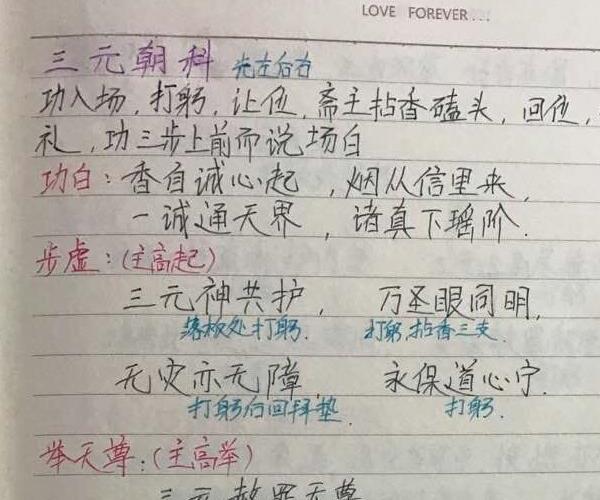 LOVE FOREVER...
三元朝科 先左后右
功入场，打躬，让位，斋主拈香磕头，回位，
礼，功三步上前而说场白
功白：香自诚心起，烟从信里来，
一诚通天界，诸真下瑶阶.
步虚：(主高起)
三元神共护，万圣眼同明，
落板处打躬. 打躬，拈香三支.
无灾亦无障，永保道心宁.
打躬后回拜垫. 打躬.
举天尊：(主高举)
三元赦罪天尊